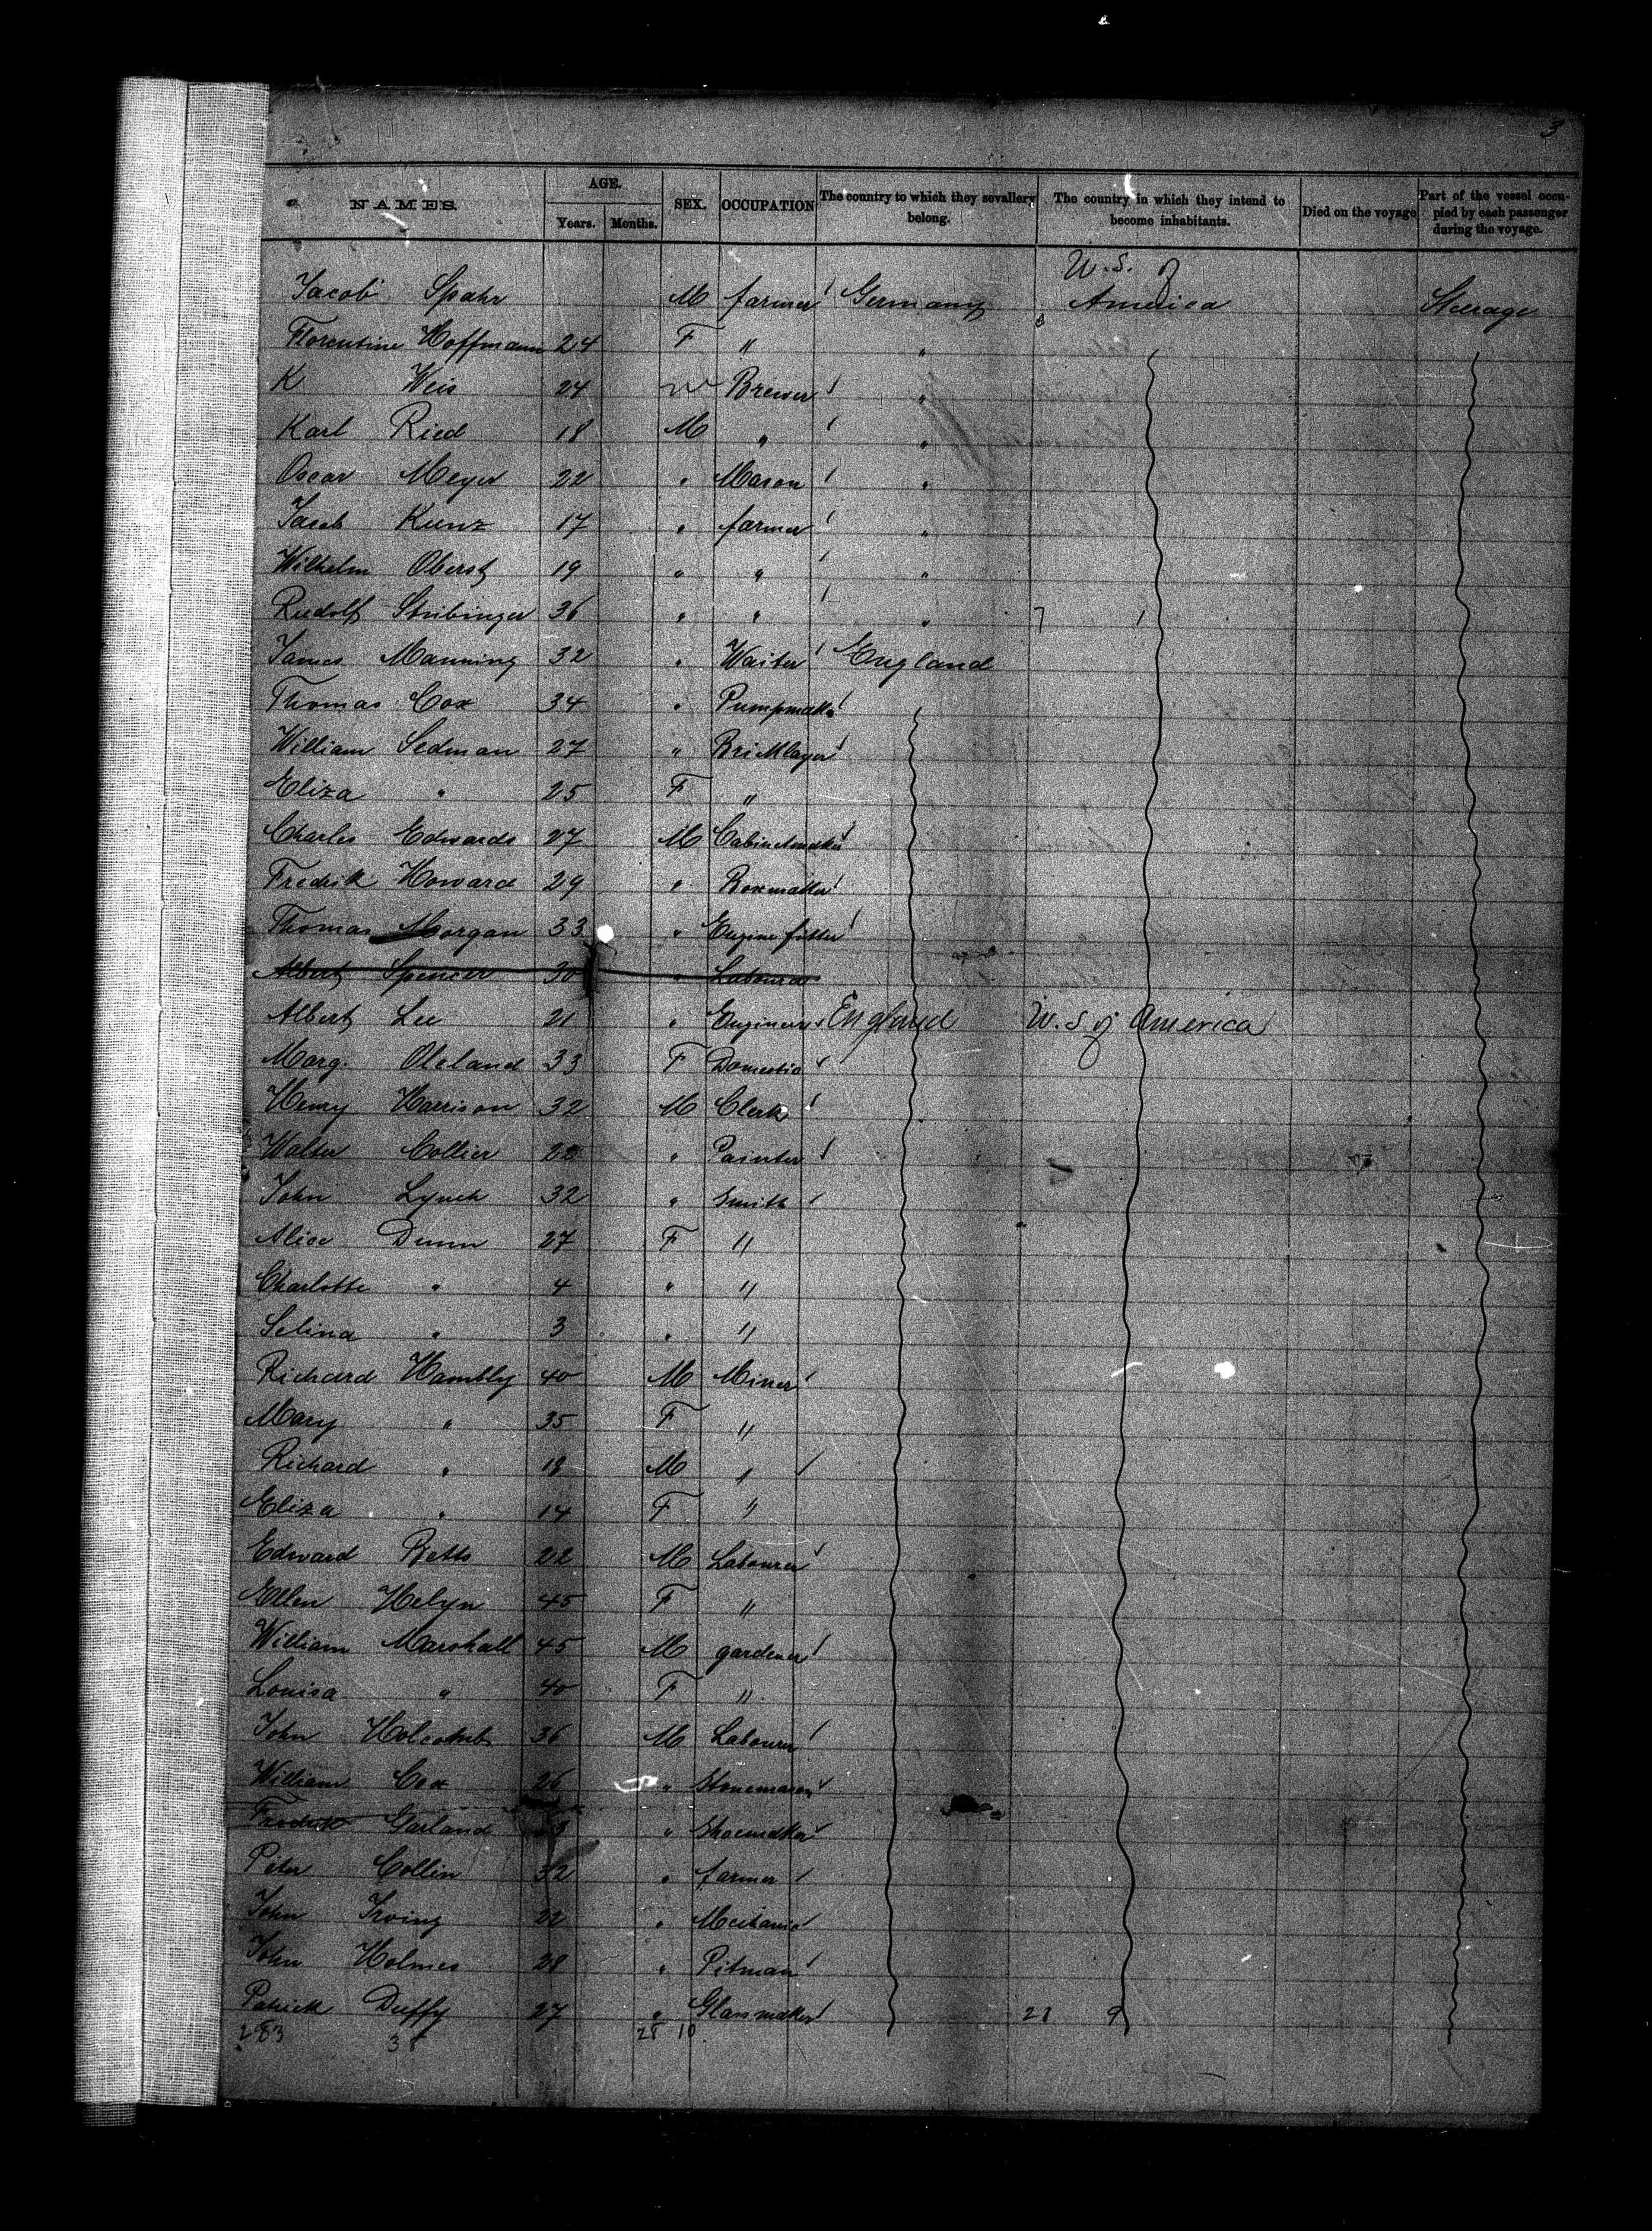 3
NAMES. AGE. Years. Months. SEX. OCCUPATION The country to which they sevallery belong. The country in which they intend to become inhabitants. Died on the voyage Part of the vessel occupied by each passenger during the voyage.
U.S. of
Jacob Spahr M farmer Germany America Steerage
Florentine Hoffmann 24 F " "
K Weis 24 Brewer "
Karl Ried 18 M " "
Oscar Meyer 22 " Mason "
Jacob Kunz 17 " farmer "
Wilhelm Oberst 19 " " "
Rudolf Stribinger 36 " " " 7 1
James Manning 32 " Waiter England
Thomas Cox 34 " Pumpmaker
William Sedman 27 " Bricklayer
Eliza " 25 F "
Charles Edwards 27 M Cabinetmaker
Fredrik Howard 29 " Boxmaker
Thomas Morgan 33 " Engine fitter
Albert Spencer 30 " Labourer
Albert Lee 21 " Engineer England U.S of America
Marg. Cleland 33 F Domestic
Henry Harrison 32 M Clerk
Walter Collier 22 " Painter
John Lynch 32 " Smith
Alice Dunn 27 F "
Charlotte " 4 " "
Selina " 3 " "
Richard Hambly 40 M Miner
Mary " 35 F "
Richard " 18 M "
Eliza " 14 F "
Edward Betts 22 M Labourer
Ellen Helyn 45 F "
William Marshall 45 M gardener
Louisa " 40 F "
John Holcomb 36 M Labourer
William Cox 26 " Stonemason
Fredrik Garland " Shoemaker
Peter Collin 32 " farmer
John Irving 22 " Mechanic
John Holmes 28 " Pitman
Patrick Duffy 27 " Glassmaker 21 9
283 38 28 10